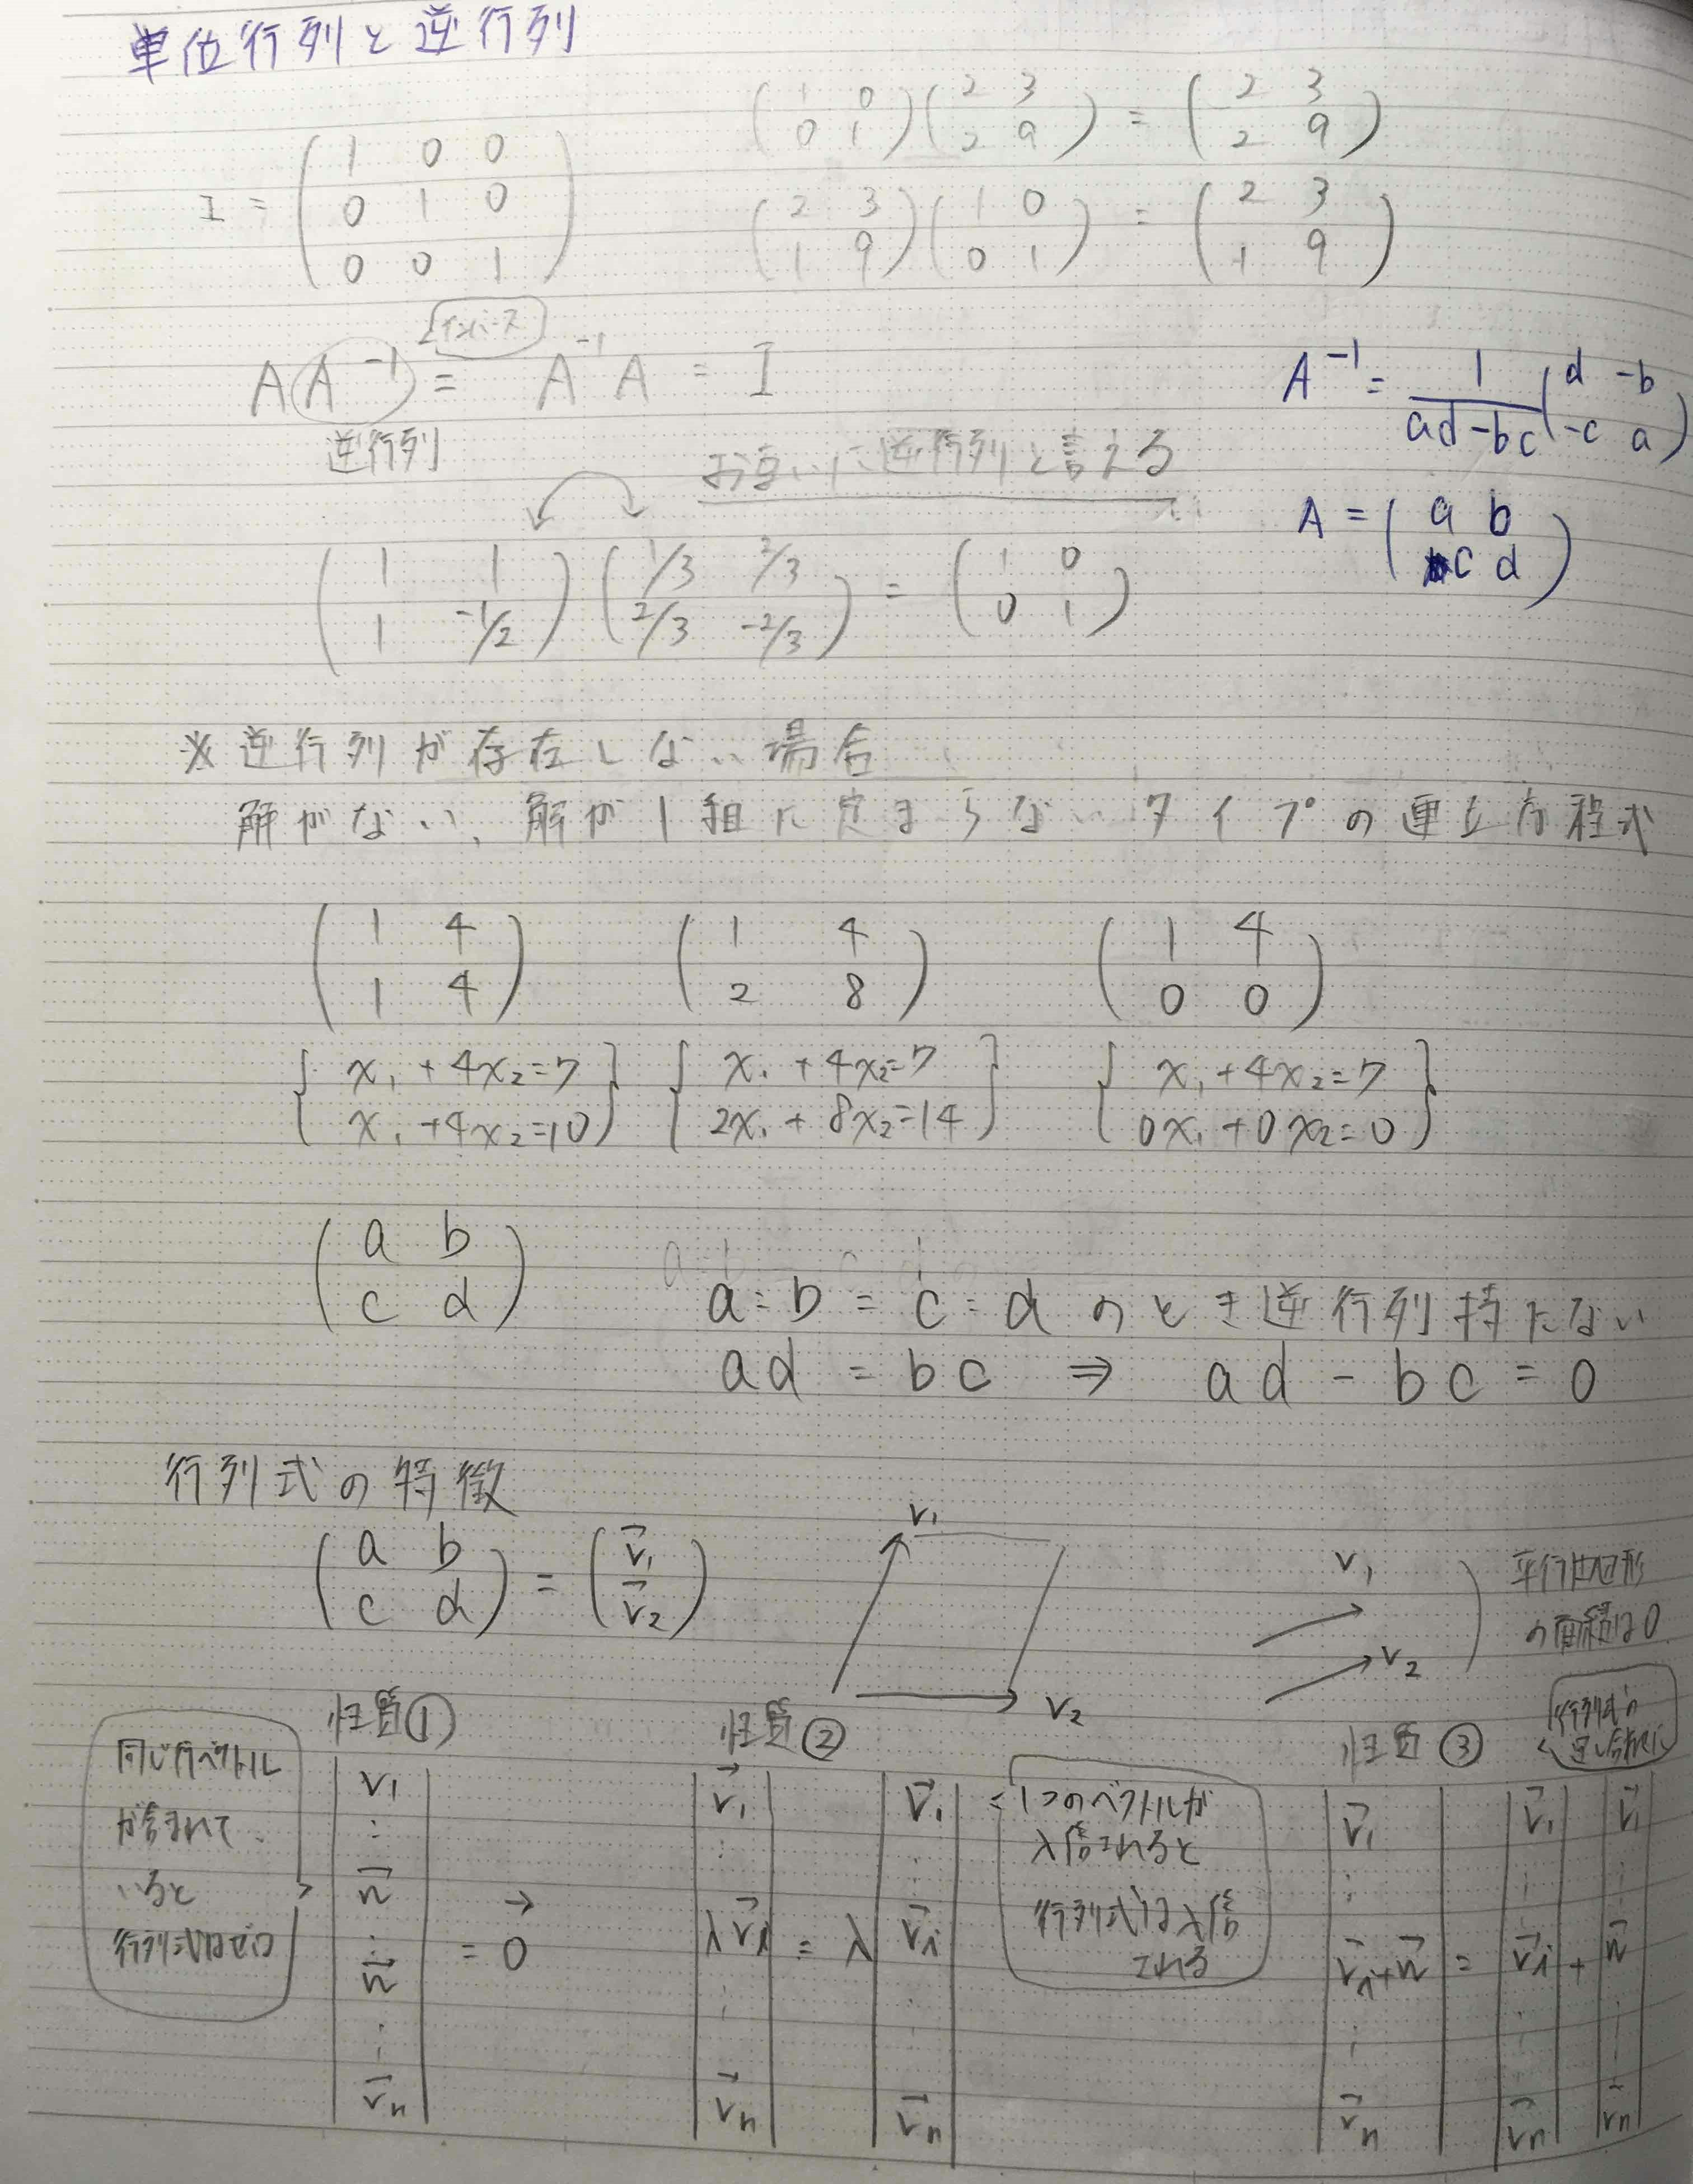 単位行列と逆行列
(1 0 / 0 1)(2 3 / 2 9) = (2 3 / 2 9)
I = (1 0 0 / 0 1 0 / 0 0 1)
(2 3 / 1 9)(1 0 / 0 1) = (2 3 / 1 9)
インバース
A A⁻¹ = A⁻¹ A = I
逆行列
A⁻¹ = 1/(ad-bc) (d -b / -c a)
お互いに逆行列と言える
A = (a b / c d)
(1 1 / 1 -1/2)(1/3 2/3 / 2/3 -2/3) = (1 0 / 0 1)
※逆行列が存在しない場合
解がない、解が1組に定まらないタイプの連立方程式
(1 4 / 1 4) (1 4 / 2 8) (1 4 / 0 0)
{x₁+4x₂=7 {x₁+4x₂=7 {x₁+4x₂=7
x₁+4x₂=10} 2x₁+8x₂=14} 0x₁+0x₂=0}
(a b / c d)
a:b = c:d のとき逆行列持たない
ad = bc ⇒ ad - bc = 0
行列式の特徴
(a b / c d) = (v⃗₁ / v⃗₂)
v₁
v₂
v₁
v₂
平行四辺形
の面積は0
性質①
同じ行ベクトル
が含まれて
いると
行列式はゼロ
|v₁ ⋮ w⃗ ⋮ w⃗ ⋮ v⃗n| = 0⃗
性質②
|v⃗₁ ⋮ λv⃗i ⋮ v⃗n| = λ|v⃗₁ ⋮ v⃗i ⋮ v⃗n|
1つのベクトルが
λ倍されると
行列式はλ倍
される
性質③
行列式の
足し合わせに
|v⃗₁ ⋮ v⃗i+w⃗ ⋮ v⃗n| = |v⃗₁ ⋮ v⃗i ⋮ v⃗n| + |v⃗₁ ⋮ w⃗ ⋮ vn|